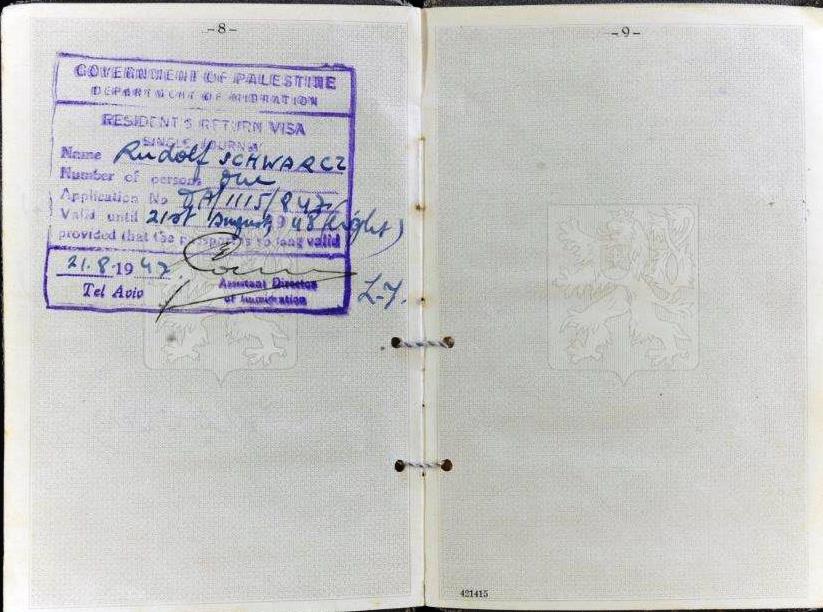 -8-
GOVERNMENT OF PALESTINE
DEPARTMENT OF MIGRATION
RESIDENT'S RETURN VISA
SINGLE JOURNEY
Name Rudolf SCHWARCZ
Number of persons One
Application No TA/1115/847/
Valid until 21st August, 948 (Eight)
provided that the passport is so long valid
21.8.1947.
Tel Aviv
Assistant Director
of Immigration
-9-
421415